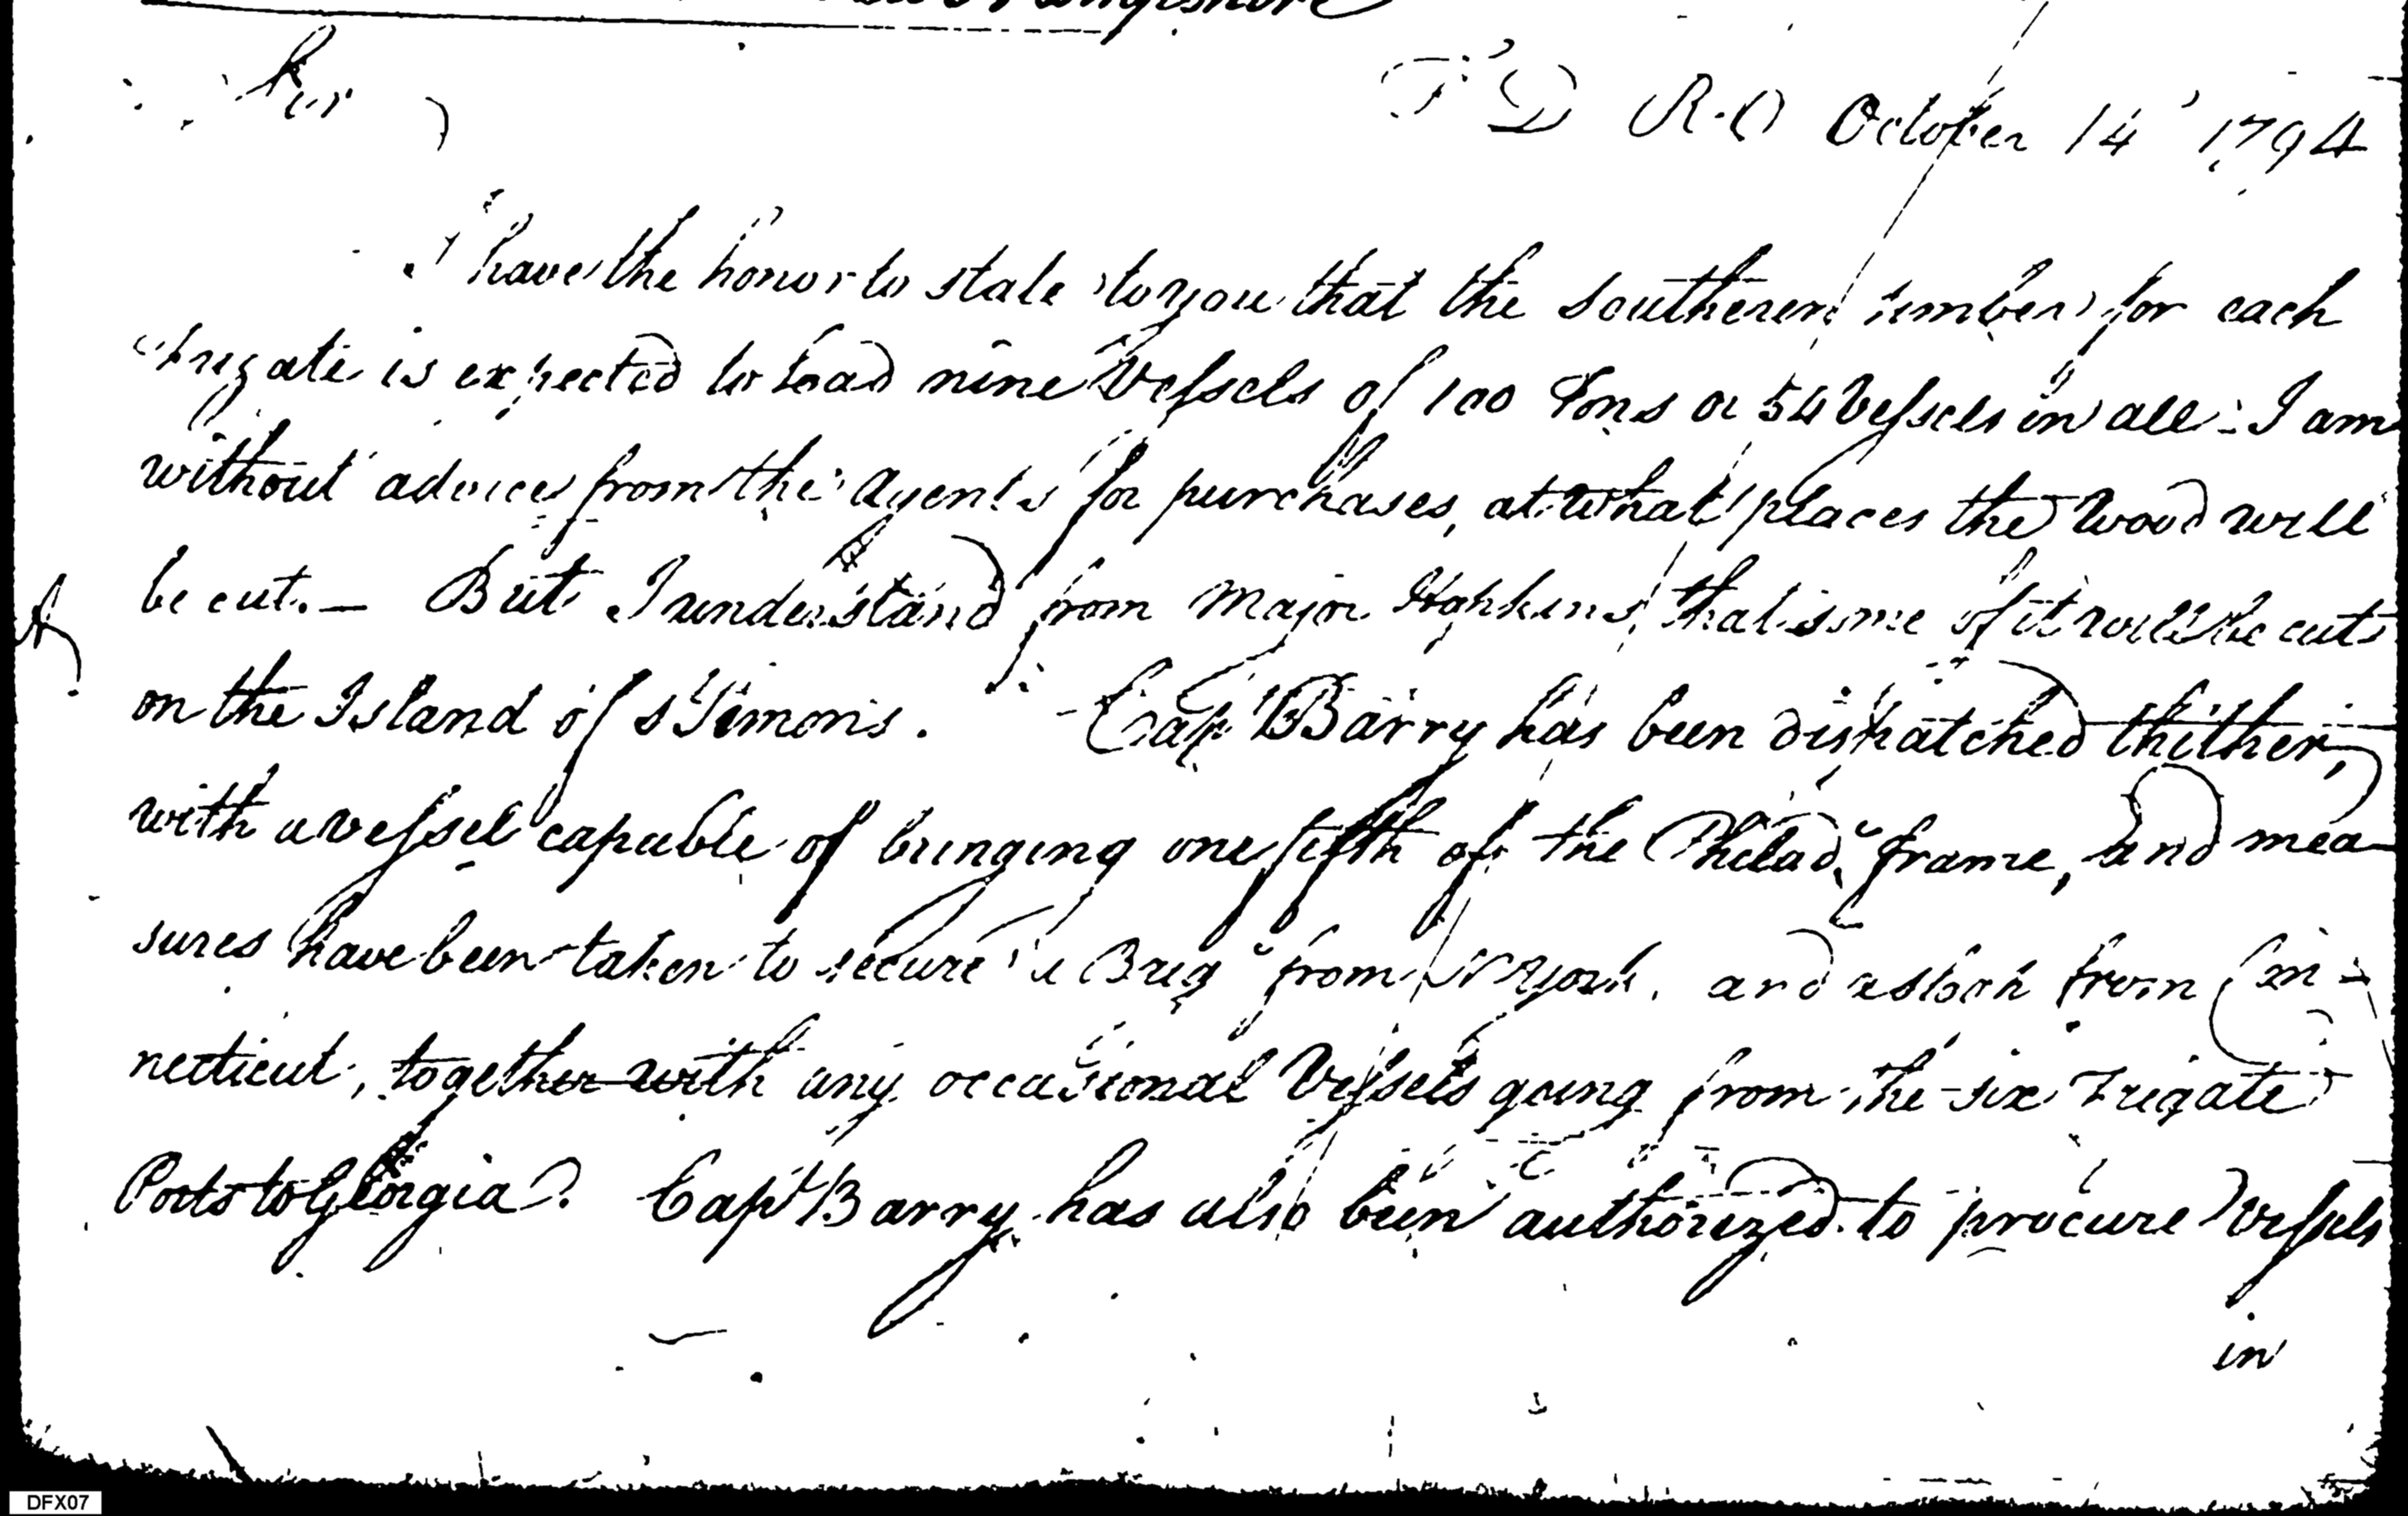 Sir
T D R.O October 14 1794
I have the honor to state to you that the southeren timber for each
Frigate is expected to load nine Vessels of 100 Tons or 54 Vessels in all: I am
without advices from the agents for purchases, at what places the wood will
be cut. — But I understand from Major Hopkins, that some of it will be cut
on the Island of st Simons. - Capt Barry has been dispatched thither,
with a vessel capable of bringing one fifth of the Philad. frame, and mea
sures have been taken to secure a Brig from N York, and a sloop from Con-
necticut, together with any occasional Vessels going from the six Frigate
Ports to Georgia. Capt Barry has also been authorized to procure Vessels
in
DFX07